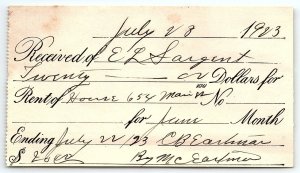 July 28 1923
Received of E L Sargent
Twenty 00 Dollars for
Rent of House 654 Main St No
for June Month
Ending July 22/23 C B Eastman
$ By Mc Eastman